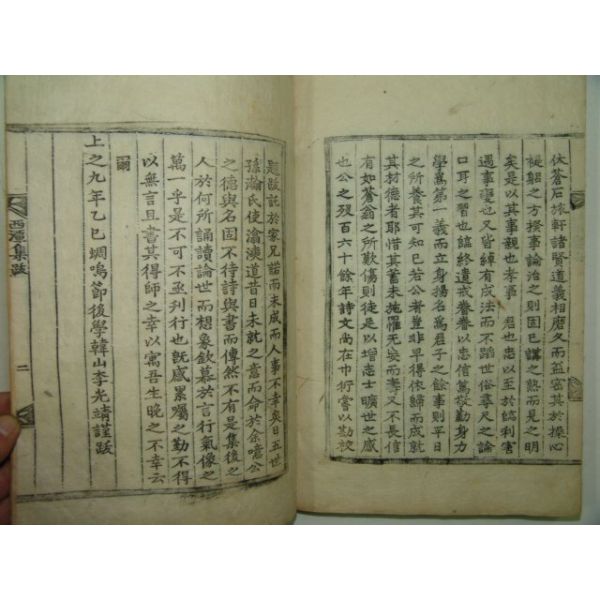 伏蒼石旅軒諸賢道義相磨久而益密其於操心
礎躬之方揆事論治之則固已講之熟而見之明
矣是以其事親也孝事 君也忠以至於臨利害
遇事變也又皆綽有成法而不蹈世俗尋尺之論
口耳之習也臨終遺戒眷眷以忠信篤敬勤身力
學爲第一義而立身揚名爲君子之餘事則平日
之所養其可知已若公者豈非早得依歸而成就
其材德者耶惜其蓄未施罹旡妄而壽又不長信
有如蒼翁之所歎傷則徒是以增志士曠世之感
也公之歿百六十餘年詩文尚在巾衍嘗以勘校
題跋託於家兄諾而未成而人事不幸矣日五世
孫瀚氏使瀹浹道昔日未就之意而命於余噫公
之德與名固不待詩與書而傳然不有是集後之
人於何所誦讀論世而想象欽慕於言行氣像之
萬一乎是不可不亟刊行也旣感累屬之勤不得
以無言且書其得師之幸以寓吾生晩之不幸云
爾
上之九年乙巳蜩鳴節後學韓山李光靖謹跋
西潭集跋
二